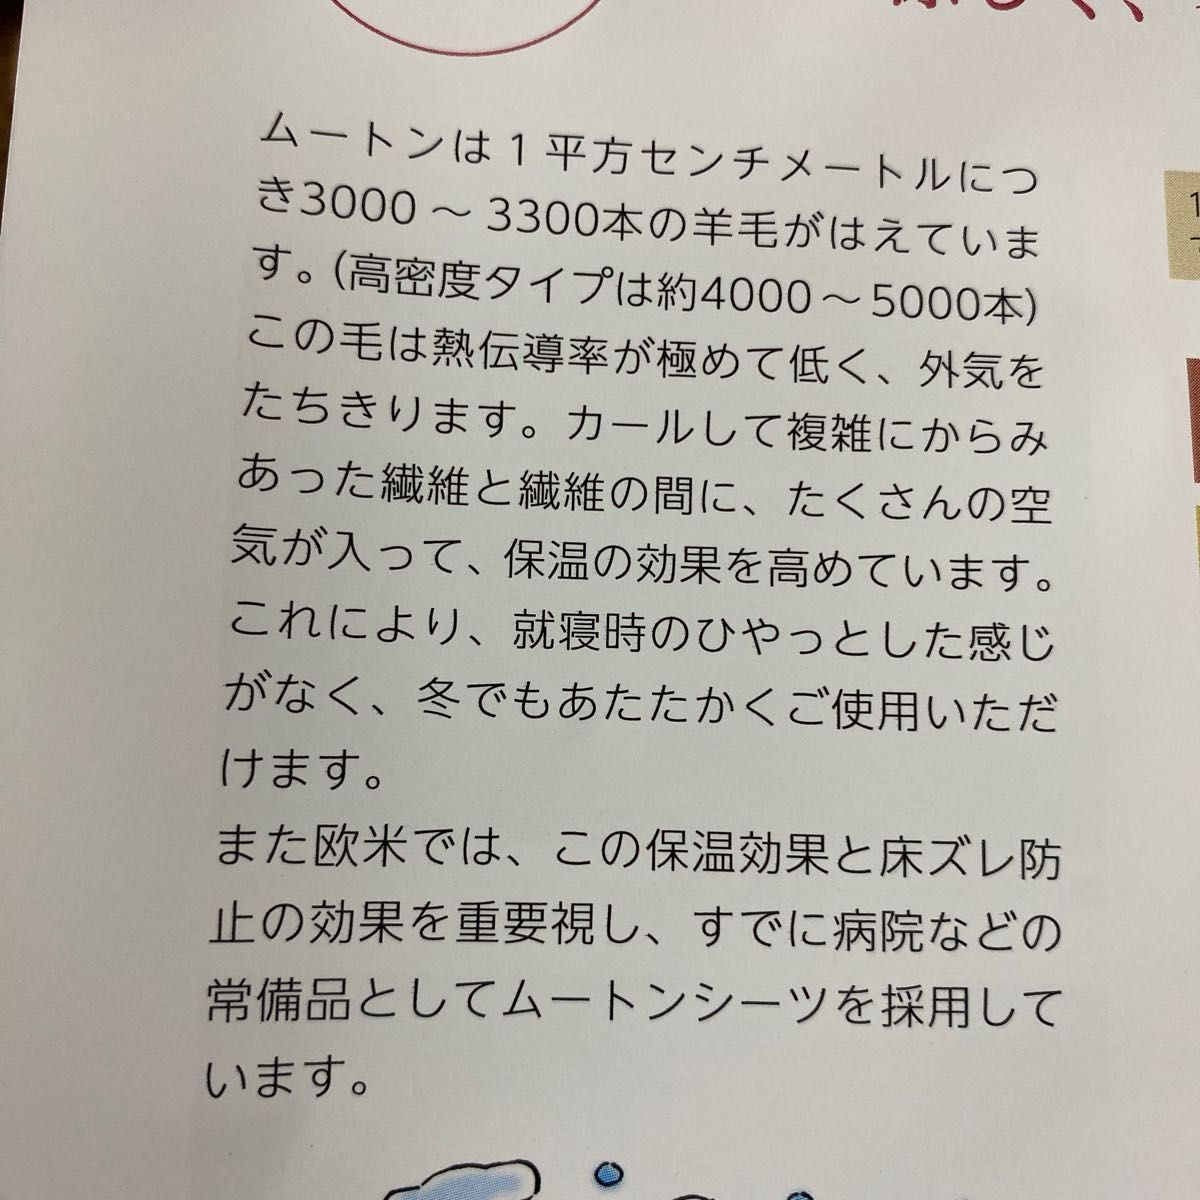 ムートンは1平方センチメートルにつ
き3000～3300本の羊毛がはえていま
す。(高密度タイプは約4000～5000本)
この毛は熱伝導率が極めて低く、外気を
たちきります。カールして複雑にからみ
あった繊維と繊維の間に、たくさんの空
気が入って、保温の効果を高めています。
これにより、就寝時のひやっとした感じ
がなく、冬でもあたたかくご使用いただ
けます。
また欧米では、この保温効果と床ズレ防
止の効果を重要視し、すでに病院などの
常備品としてムートンシーツを採用して
います。